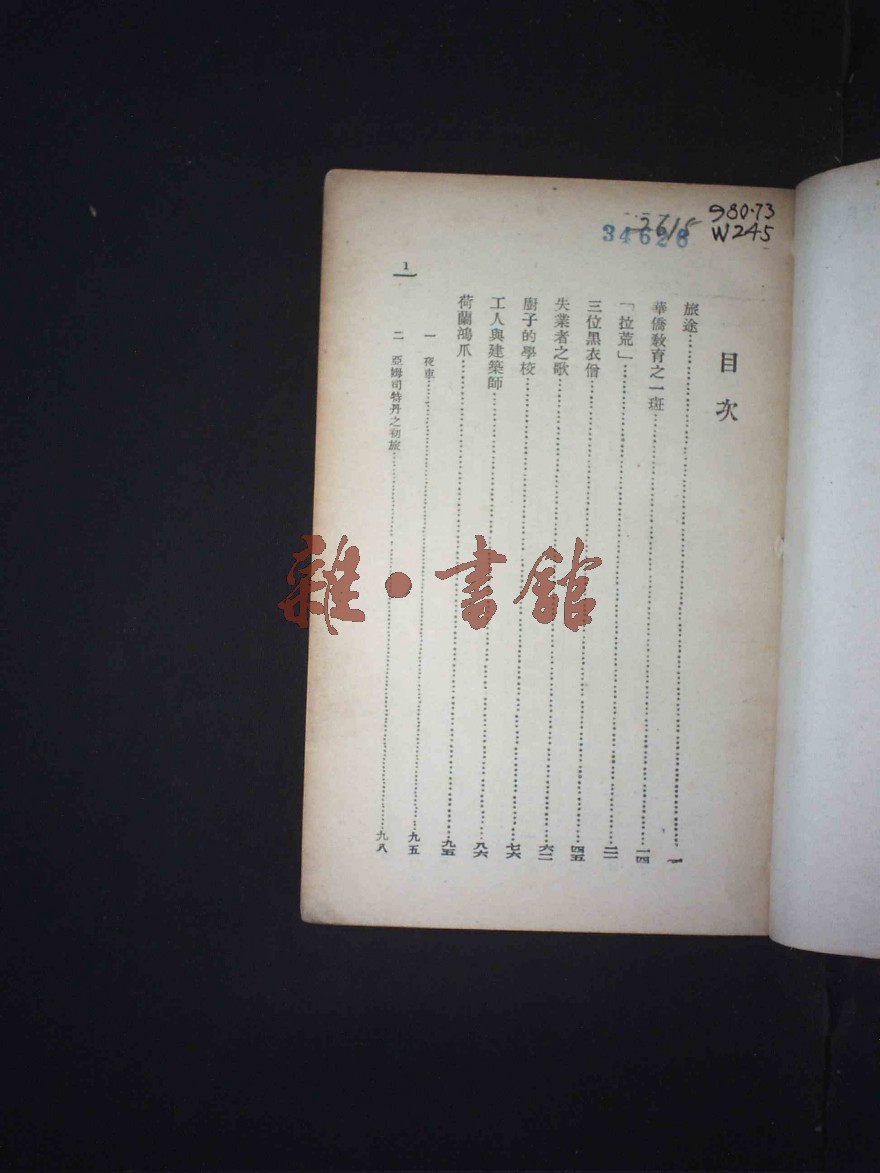 980·73
W245
34628
目次
旅途……一
華僑教育之一斑……一四
「拉荒」……二一
三位黑衣僧……四五
失業者之歌……六二
廚子的學校……七六
工人與建築師……八六
荷蘭鴻爪……九五
一 夜車……九五
二 亞姆司特丹之初旅……九八
1
雜·書館